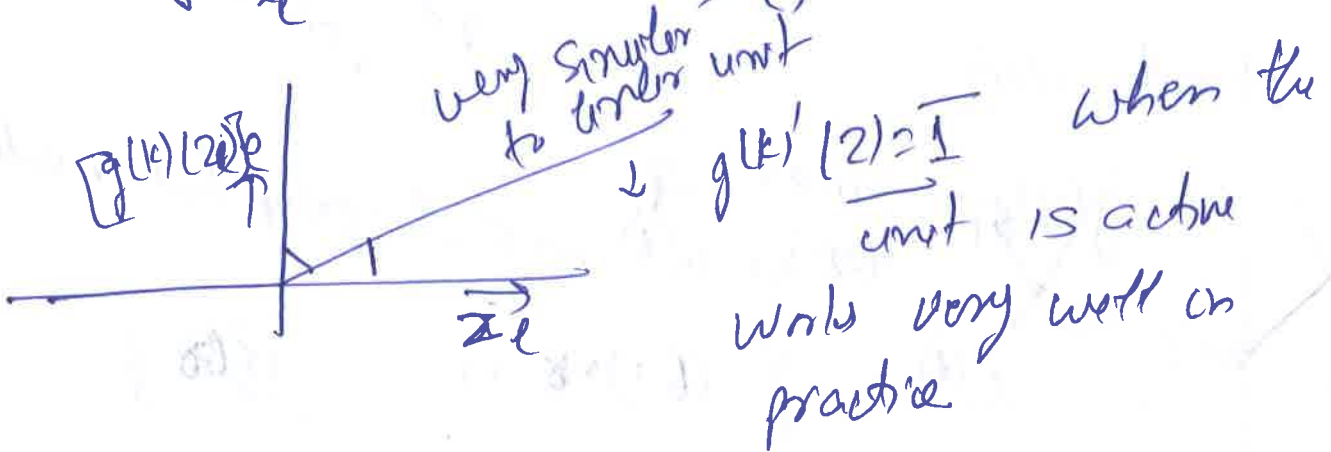 very similar
to linear unit
[g(k)(ze)]e
↓ g(k)'(z)=1 when the
unit is active
works very well in
practice
ze